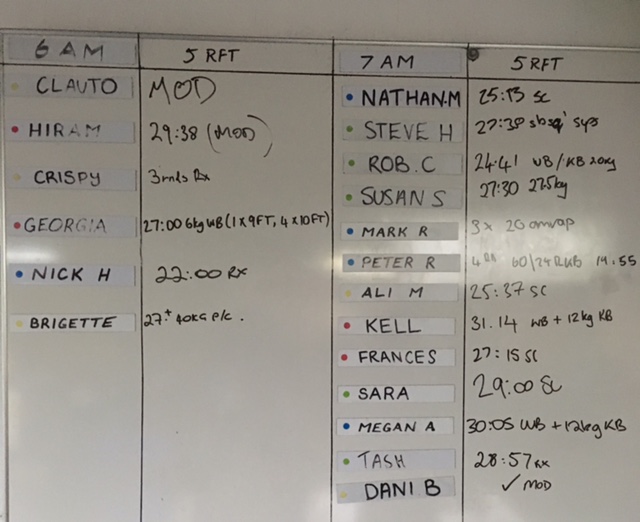 6 AM 5 RFT
CLAUTO MOD
HIRAM 29:38 (MOD)
CRISPY 3rnds Rx
GEORGIA 27:00 6kg WB (1 X 9FT, 4 X 10FT)
NICK H 22:00 RX
BRIGETTE 27:+ 40KG P/C.
7 AM 5 RFT
NATHAN.M 25:13 SC
STEVE H 27:38
ROB.C 24:41 WB/KB 20kg
SUSAN S 27:30 27.5kg
MARK R 3x 20 amrap
PETER R 60/24 19.55
ALI M 25:37 SC
KELL 31.14 WB + 12kg KB
FRANCES 27:15 SC
SARA 29:00 SC
MEGAN A 30:05 WB + 12kg KB
TASH 28:57 RX
DANI B ✓ MOD